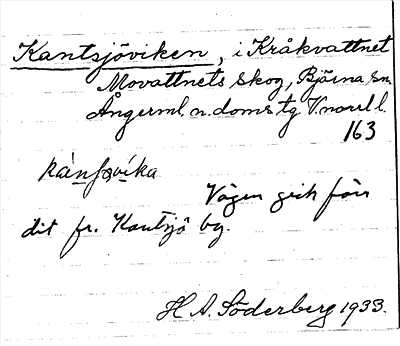 Kantsjöviken, i Kråkvattnet
Movattnets skog, Björna sn.
Ångerml. n. doms tg. V.norrl l.
163
Vägen gick förr
dit fr. Kantsjö by.
H. A. Söderberg 1933.